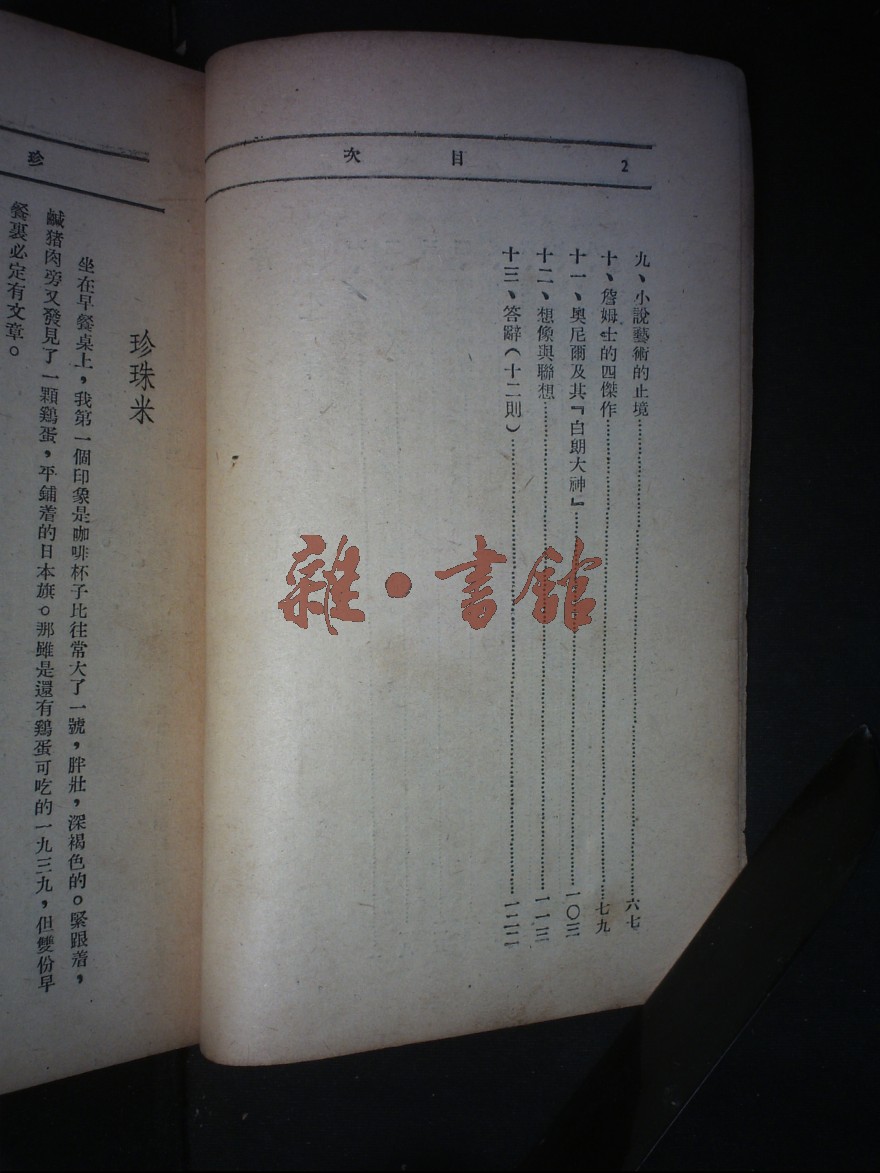 2 目次
九、小說藝術的止境……六七
十、詹姆士的四傑作……七九
十一、奧尼爾及其『白朗大神』……一〇三
十二、想像與聯想……一一三
十三、答辭（十二則）……一二二
珍
珍珠米
坐在早餐桌上，我第一個印象是咖啡杯子比往常大了一號，胖壯，深褐色的。緊跟着，
鹹猪肉旁又發見了一顆鷄蛋，平鋪着的日本旗。那雖是還有鷄蛋可吃的一九三九，但雙份早
餐裏必定有文章。
雜·書館